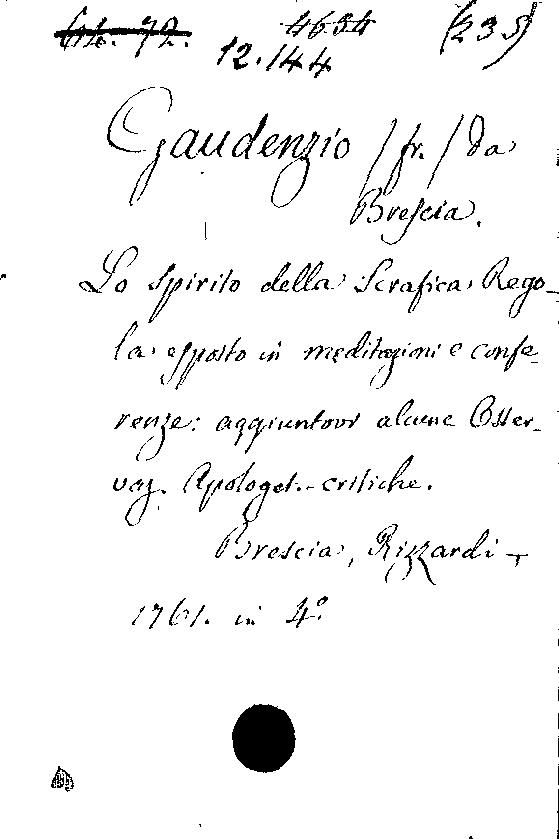 64. 72. 4654 (235)
12.144
Gaudenzio /fr./ da
Brescia.
Lo spirito della Serafica Rego-
la esposto in meditazioni e confe-
renze: aggiuntovi alcune Osser-
vaz. Apologet.-critiche.
Brescia, Rizzardi
1761. in 4º